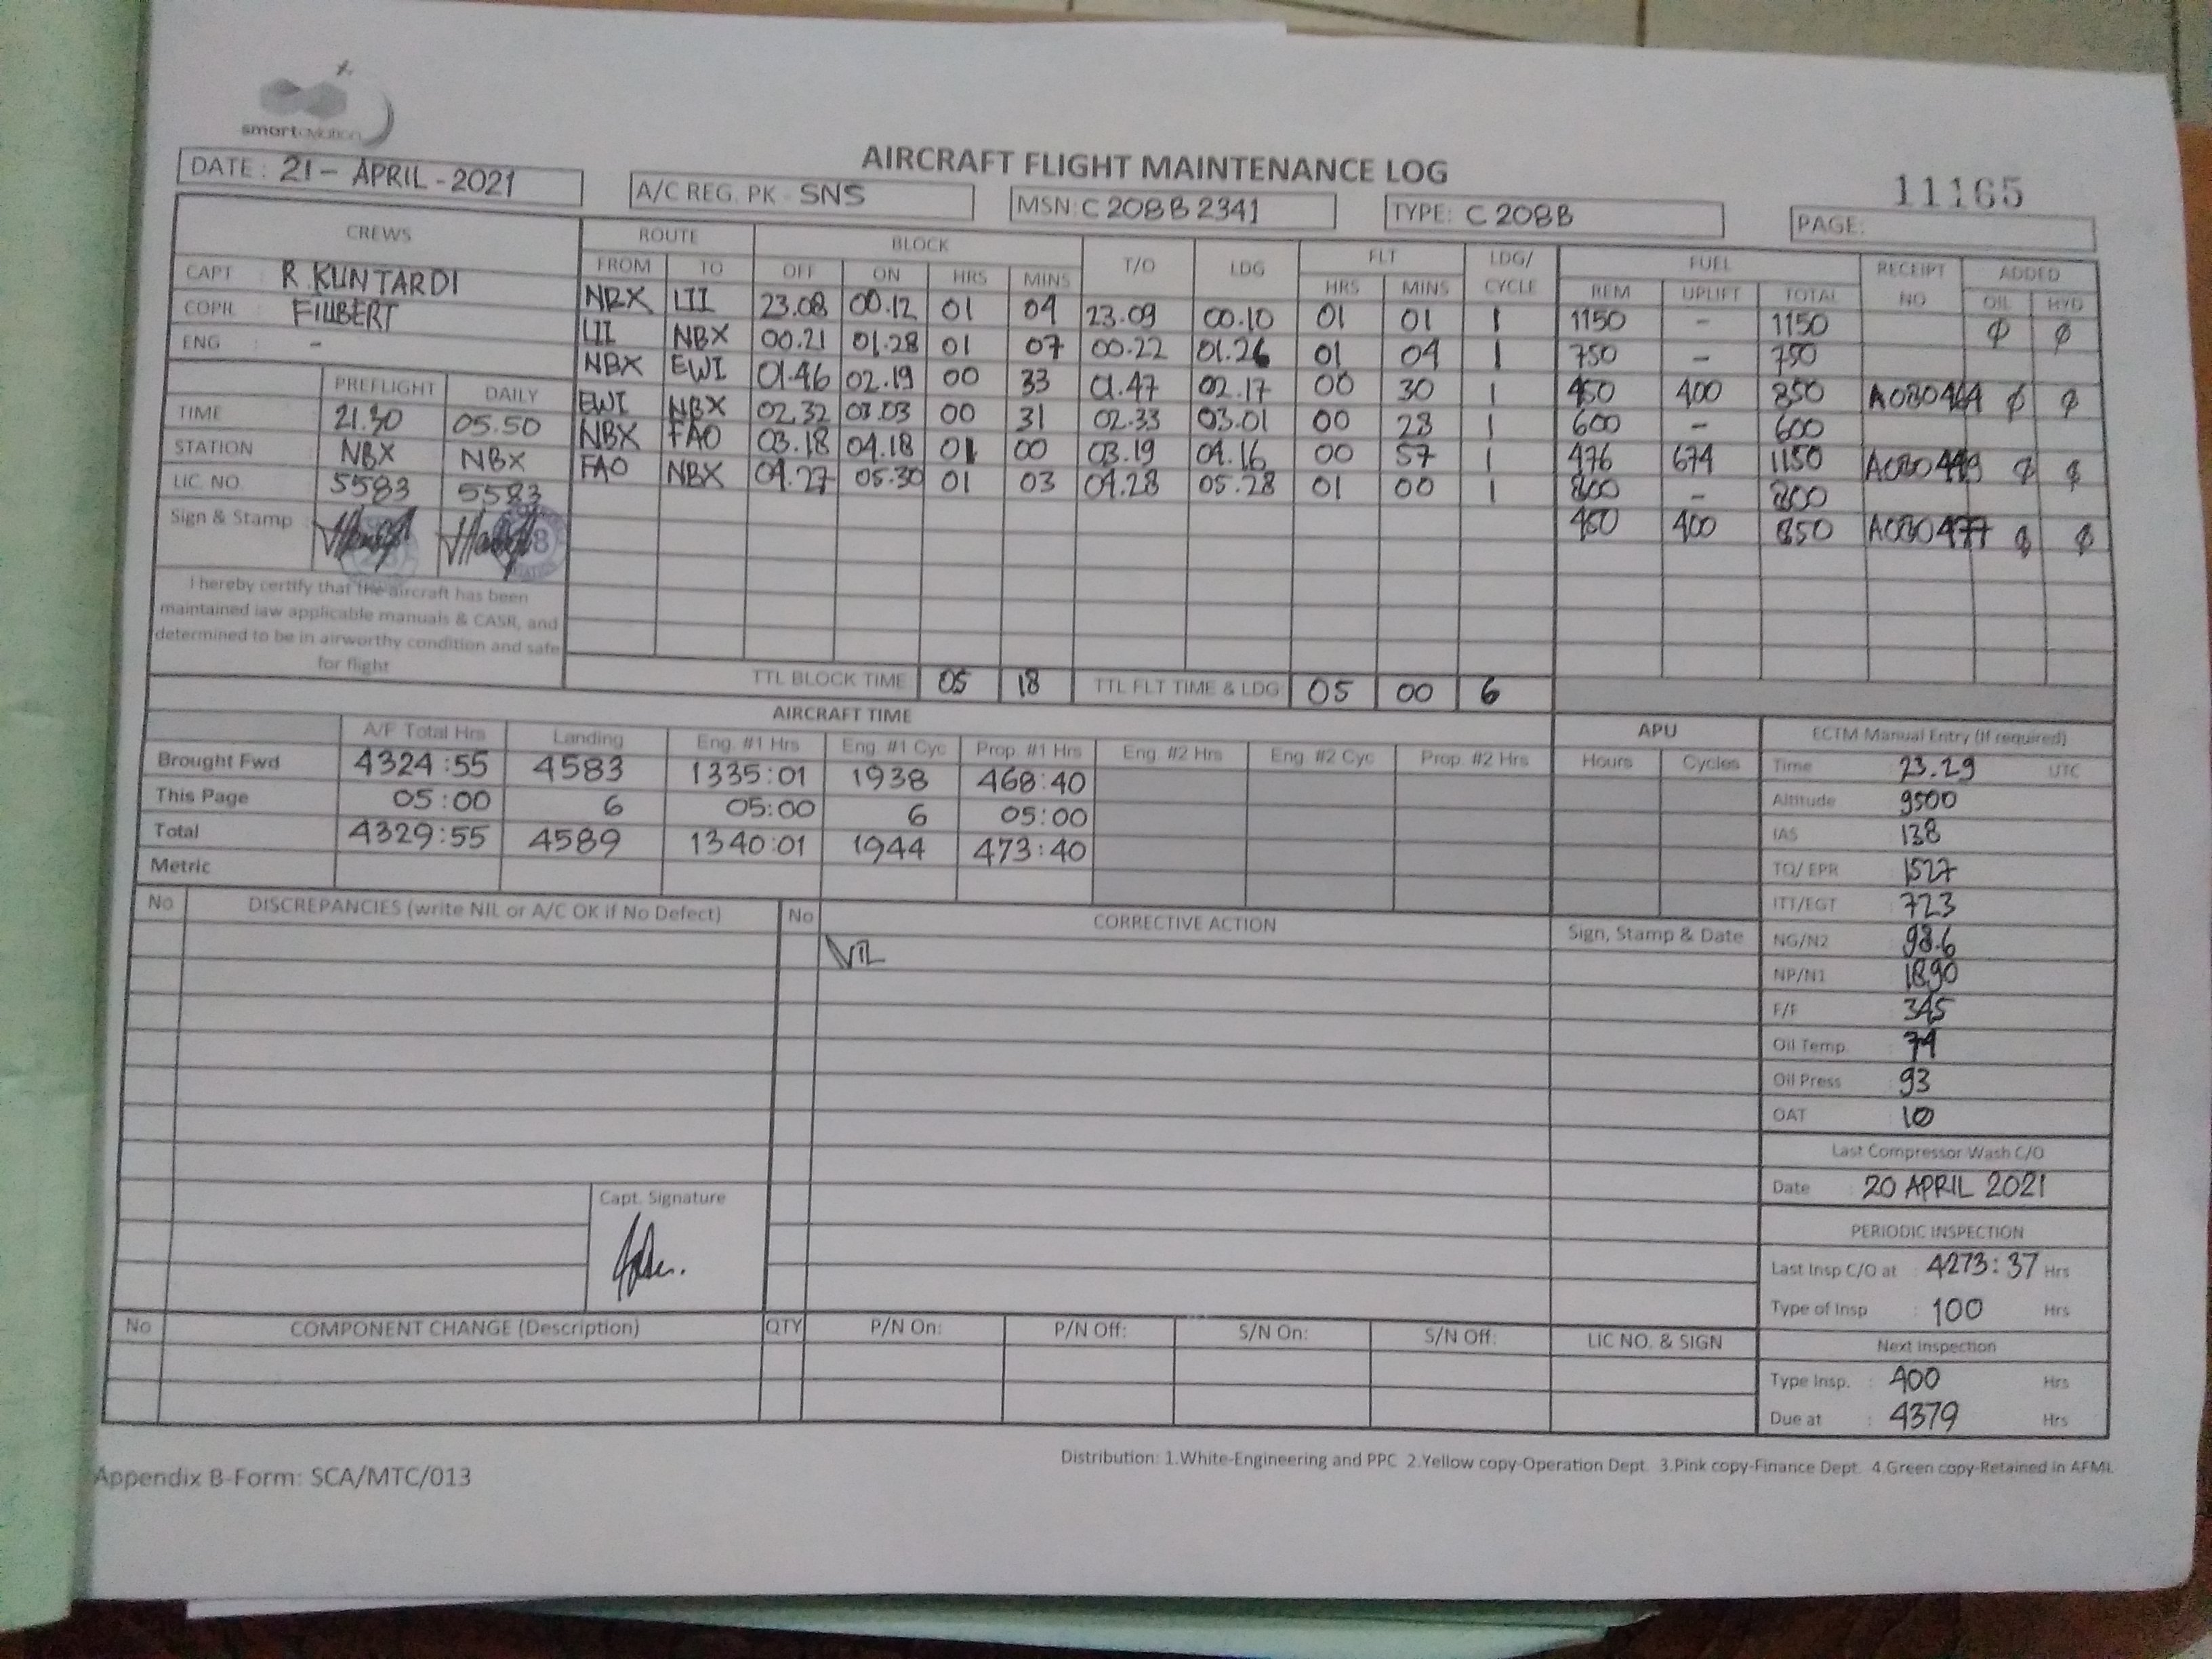 smart aviation
AIRCRAFT FLIGHT MAINTENANCE LOG
11165
DATE : 21 - APRIL - 2021
A/C REG. PK - SNS
MSN: C 208B 2341
TYPE: C 208B
PAGE:
CREWS
CAPT : R. KUNTARDI
COPIL : FILIBERT
ENG : -
PREFLIGHT DAILY
TIME 21.30 05.50
STATION NBX NBX
LIC. NO. 5583 5583
Sign & Stamp
I hereby certify that the aircraft has been
maintained iaw applicable manuals & CASR, and
determined to be in airworthy condition and safe
for flight
ROUTE BLOCK T/O LDG FLT LDG/ CYCLE FUEL RECEIPT NO ADDED
FROM TO OFF ON HRS MINS HRS MINS REM UPLIFT TOTAL OIL HYD
NBX LII 23.08 00.12 01 04 23.09 00.10 01 01 1 1150 - 1150 ϕ ϕ
LII NBX 00.21 01.28 01 07 00.22 01.26 01 04 1 750 - 750
NBX EWI 01.46 02.19 00 33 01.47 02.17 00 30 1 450 400 850 ϕ ϕ
EWI NBX 02.32 03.03 00 31 02.33 03.01 00 28 1 600 - 600
NBX FAO 03.18 04.18 01 00 03.19 04.16 00 57 1 476 674 1150 ϕ ϕ
FAO NBX 04.27 05.30 01 03 04.28 05.28 01 00 1 800 - 800
450 400 850 ϕ ϕ
TTL BLOCK TIME 05 18 TTL FLT TIME & LDG 05 00 6
AIRCRAFT TIME
A/F Total Hrs Landing Eng. #1 Hrs Eng. #1 Cyc Prop. #1 Hrs Eng. #2 Hrs Eng. #2 Cyc Prop. #2 Hrs
Brought Fwd 4324:55 4583 1335:01 1938 468:40
This Page 05:00 6 05:00 6 05:00
Total 4329:55 4589 1340:01 1944 473:40
Metric
APU
Hours Cycles
ECTM Manual Entry (if required)
Time : 23.29 UTC
Altitude : 9500
IAS : 138
TQ/ EPR : 1527
ITT/EGT : 723
NG/N2 : 98.6
NP/N1 : 1890
F/F : 345
Oil Temp. : 74
Oil Press : 93
OAT : 10
Last Compressor Wash C/O
Date : 20 APRIL 2021
PERIODIC INSPECTION
Last Insp C/O at : 4273:37 Hrs
Type of Insp : 100 Hrs
Next Inspection
Type Insp. : 400 Hrs
Due at : 4379 Hrs
No DISCREPANCIES (write NIL or A/C OK if No Defect) No CORRECTIVE ACTION Sign, Stamp & Date
NIL
Capt. Signature
No COMPONENT CHANGE (Description) QTY P/N On: P/N Off: S/N On: S/N Off: LIC NO. & SIGN
Distribution: 1.White-Engineering and PPC 2.Yellow copy-Operation Dept. 3.Pink copy-Finance Dept. 4.Green copy-Retained in AFML
Appendix B-Form: SCA/MTC/013